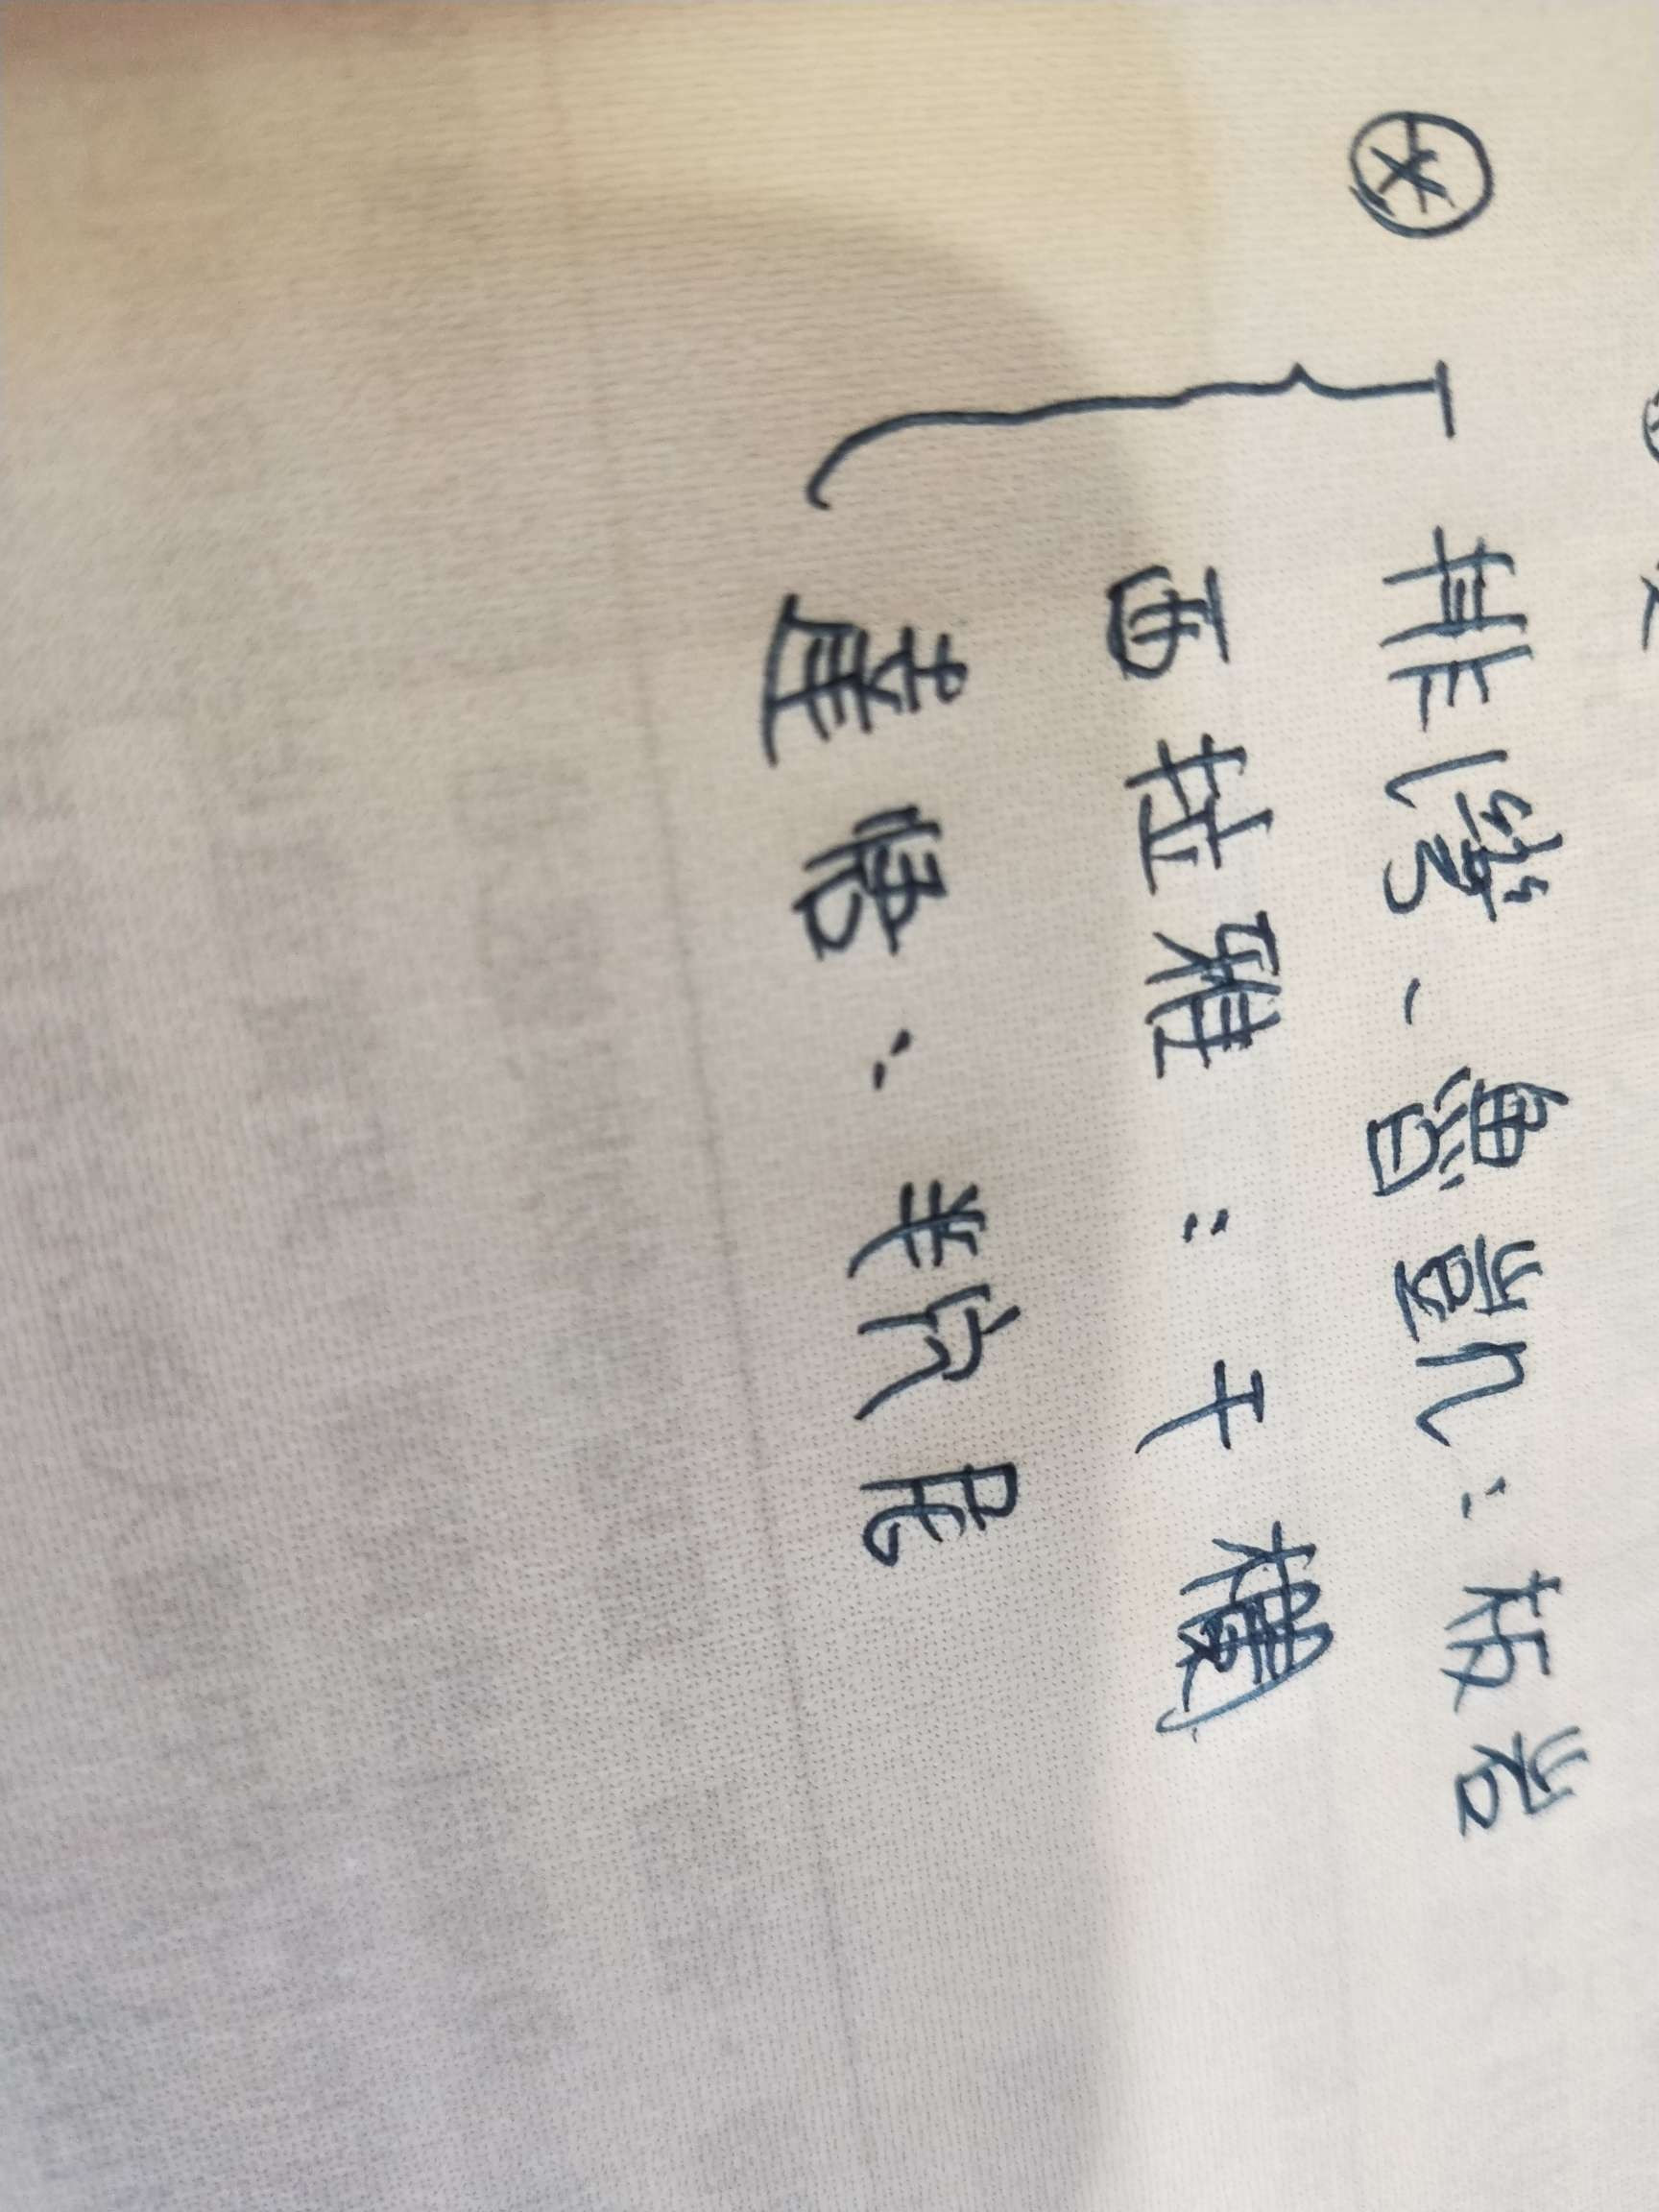 ⊛ 排灣、魯凱:板岩
西拉雅:干欄
達悟:半穴居